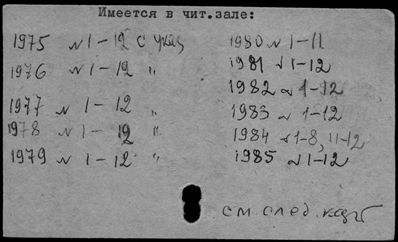 Имеется в чит.зале:
1975 N 1-12 с указ
1976 N 1-12 "
1977 N 1-12 "
1978 N 1-12 "
1979 N 1-12 "
1980 N 1-11
1981 N 1-12
1982 N 1-12
1983 N 1-12
1984 N 1-8, 11-12
1985 N 1-12
см. след.